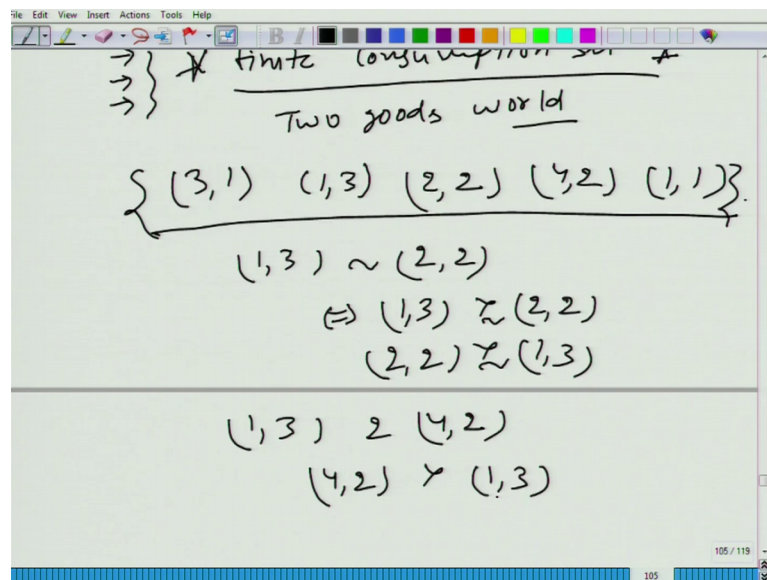 File Edit View Insert Actions Tools Help
finite consumption set
Two goods world
{(3,1) (1,3) (2,2) (4,2) (1,1)}.
(1,3) ~ (2,2)
⇔ (1,3) ≿ (2,2)
(2,2) ≿ (1,3)
(1,3) 2 (4,2)
(4,2) ≻ (1,3)
105 / 119
105